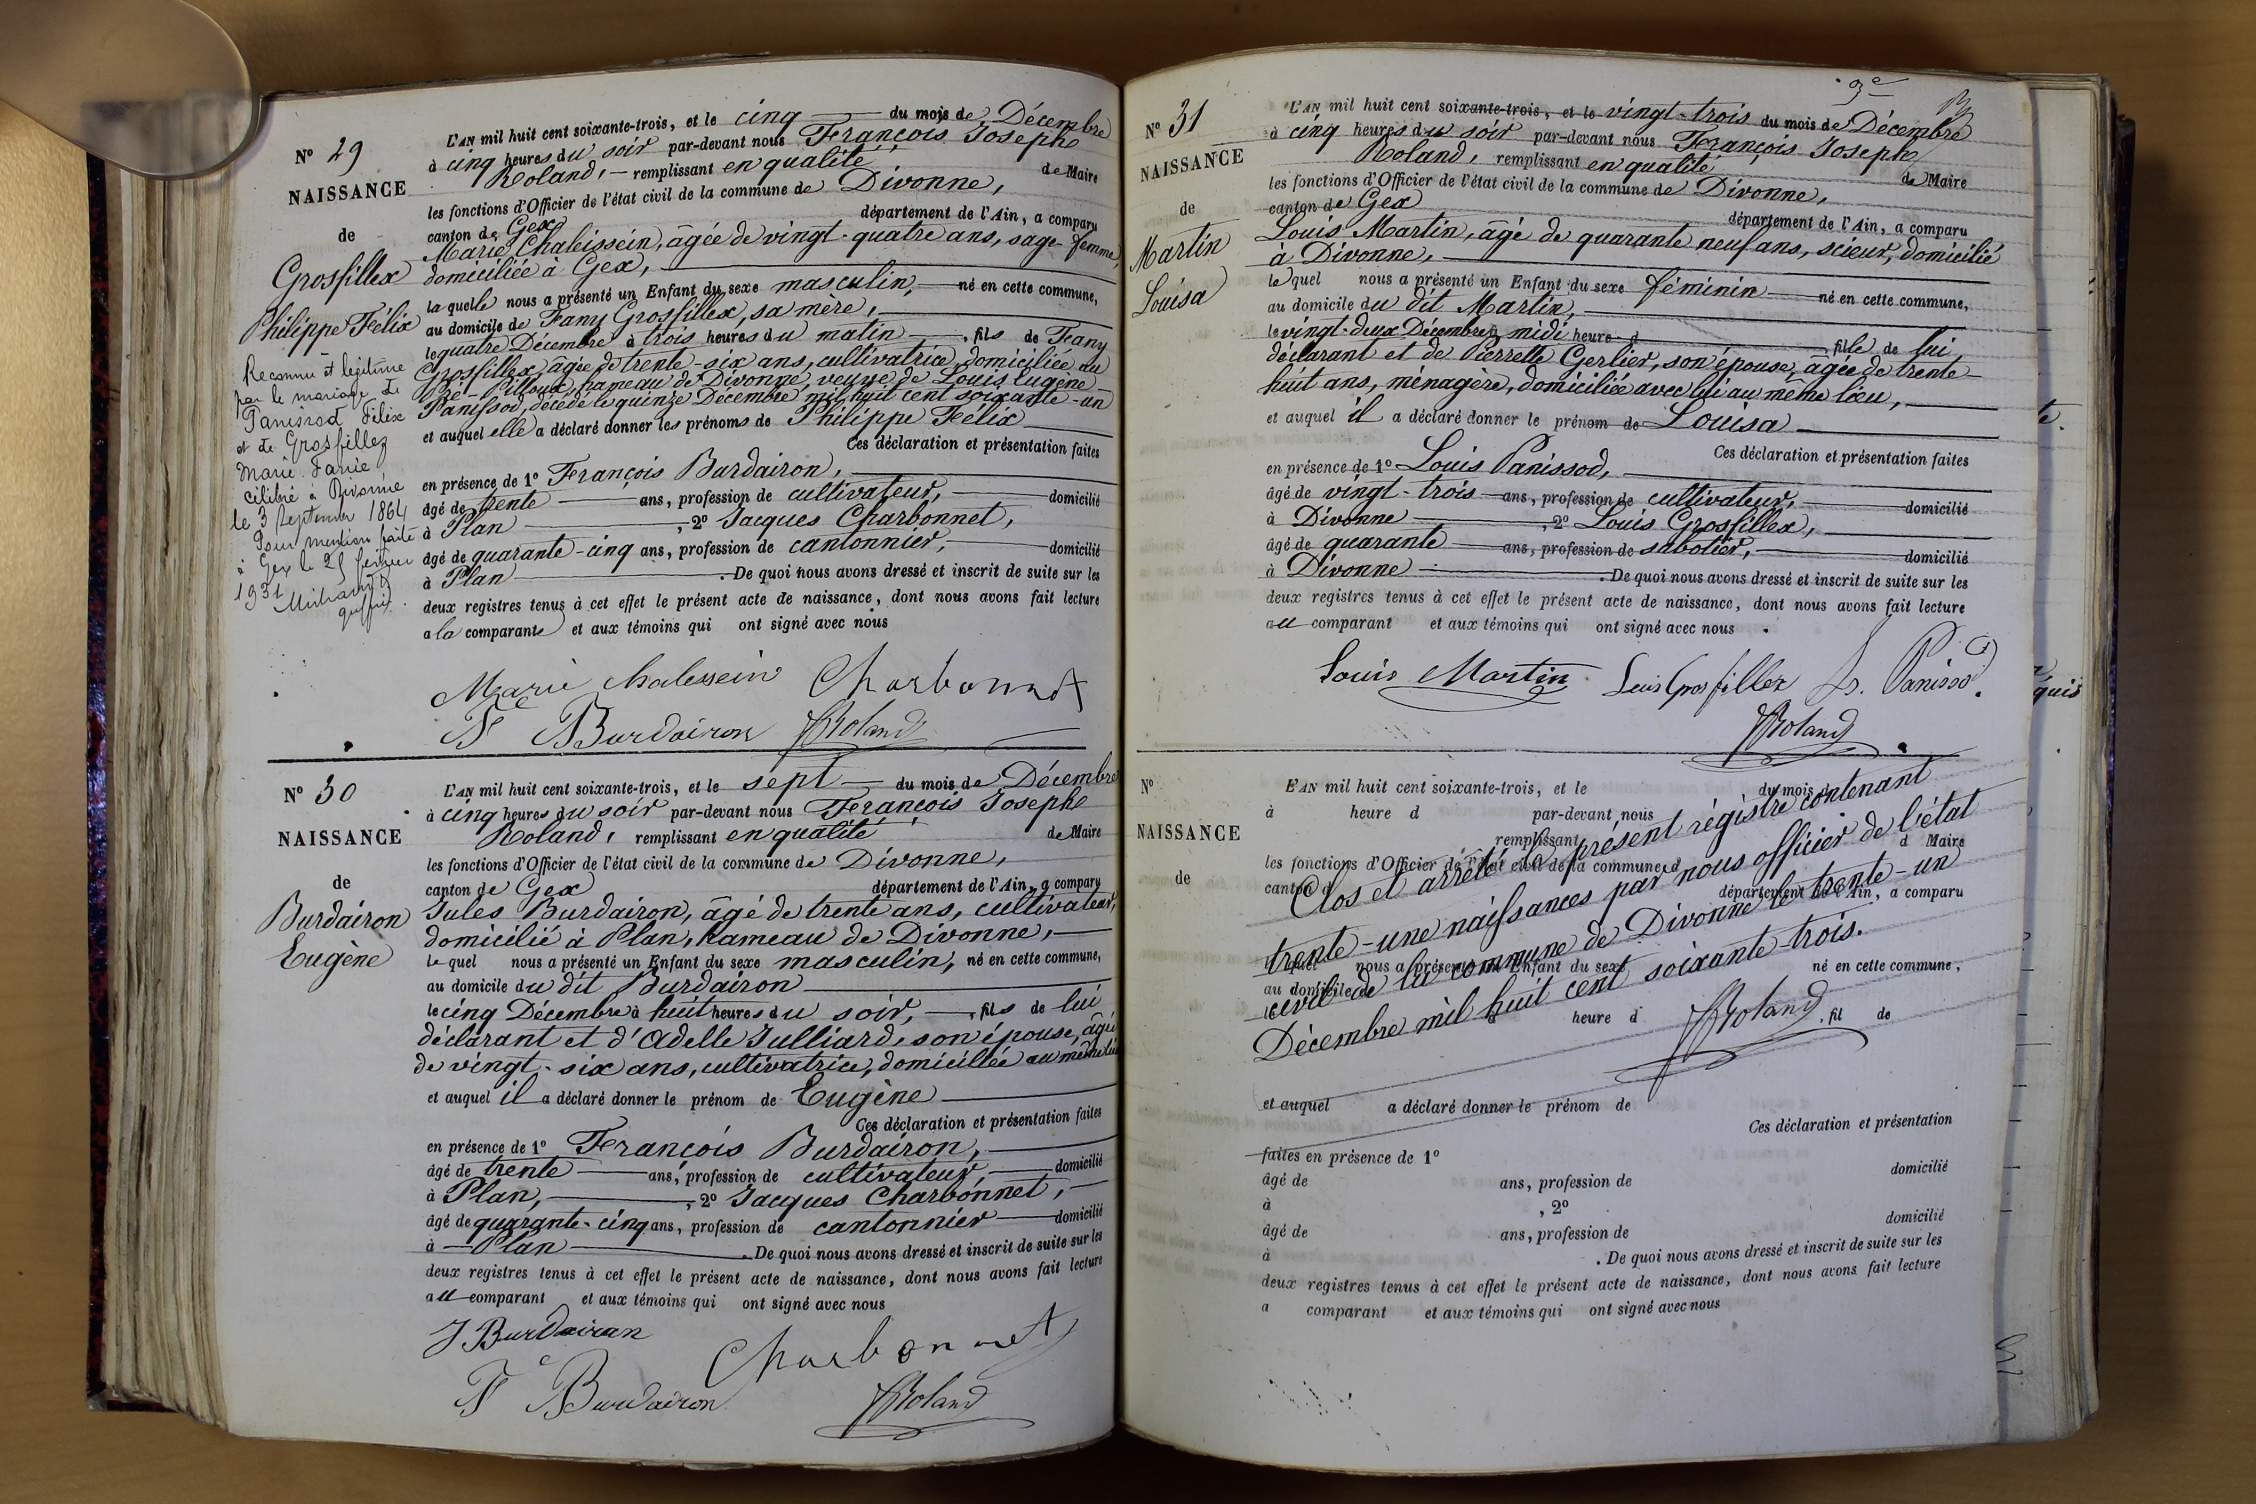 N° 29
NAISSANCE
de
Grosfillex
Philippe Félix
Reconnu et légitimé
par le mariage de
Panissod Félix
et de Grosfillex
Marie Fanie
célébré à Divonne
le 3 Septembre 1864
Pour mention faite
à Gex le 25 février
1931
L'AN mil huit cent soixante-trois, et le cinq du mois de Décembre
à cinq heures du soir par-devant nous François Joseph
Roland, remplissant en qualité de Maire
les fonctions d'Officier de l'état civil de la commune de Divonne,
canton de Gex département de l'Ain, a comparu
Marie Chaleissein, âgée de vingt-quatre ans, sage-femme,
domiciliée à Gex,
laquelle nous a présenté un Enfant du sexe masculin, né en cette commune,
au domicile de Fany Grosfillex, sa mère,
le quatre Décembre à trois heures du matin, fils de Fany
Grosfillex, âgée de trente-six ans, cultivatrice, domiciliée au
Pré-Pilloud, hameau de Divonne, veuve de Louis Eugène
Panissod, décédé le quinze Décembre mil huit cent soixante-un
et auquel elle a déclaré donner les prénoms de Philippe Félix
Ces déclaration et présentation faites
en présence de 1° François Burdairon,
âgé de trente ans, profession de cultivateur, domicilié
à Plan, 2° Jacques Charbonnet,
âgé de quarante-cinq ans, profession de cantonnier, domicilié
à Plan. De quoi nous avons dressé et inscrit de suite sur les
deux registres tenus à cet effet le présent acte de naissance, dont nous avons fait lecture
a la comparante et aux témoins qui ont signé avec nous
Marie Chalessein Charbonnet
Fs Burdairon JRoland
N° 30
NAISSANCE
de
Burdairon
Eugène
L'AN mil huit cent soixante-trois, et le sept du mois de Décembre
à cinq heures du soir par-devant nous François Joseph
Roland, remplissant en qualité de Maire
les fonctions d'Officier de l'état civil de la commune de Divonne,
canton de Gex département de l'Ain, a comparu
Jules Burdairon, âgé de trente ans, cultivateur,
domicilié à Plan, hameau de Divonne,
lequel nous a présenté un Enfant du sexe masculin, né en cette commune,
au domicile du dit Burdairon
le cinq Décembre à huit heures du soir, fils de lui
déclarant et d'Adelle Julliard, son épouse, âgée
de vingt-six ans, cultivatrice, domiciliée au même lieu
et auquel il a déclaré donner le prénom de Eugène
Ces déclaration et présentation faites
en présence de 1° François Burdairon,
âgé de trente ans, profession de cultivateur, domicilié
à Plan, 2° Jacques Charbonnet,
âgé de quarante-cinq ans, profession de cantonnier domicilié
à Plan. De quoi nous avons dressé et inscrit de suite sur les
deux registres tenus à cet effet le présent acte de naissance, dont nous avons fait lecture
au comparant et aux témoins qui ont signé avec nous
J Burdairon
Charbonnet
Fs Burdairon JRoland
N° 31
NAISSANCE
de
Martin
Louisa
L'AN mil huit cent soixante-trois, et le vingt-trois du mois de Décembre
à cinq heures du soir par-devant nous François Joseph
Roland, remplissant en qualité de Maire
les fonctions d'Officier de l'état civil de la commune de Divonne,
canton de Gex département de l'Ain, a comparu
Louis Martin, âgé de quarante neuf ans, scieur, domicilié
à Divonne,
lequel nous a présenté un Enfant du sexe féminin né en cette commune,
au domicile du dit Martin,
le vingt-deux Décembre, à midi heure d , fille de lui
déclarant et de Pierrette Gerlier, son épouse, âgée de trente-
huit ans, ménagère, domiciliée avec lui au même lieu,
et auquel il a déclaré donner le prénom de Louisa
Ces déclaration et présentation faites
en présence de 1° Louis Panissod,
âgé de vingt-trois ans, profession de cultivateur, domicilié
à Divonne, 2° Louis Grosfillex,
âgé de quarante ans, profession de sabotier, domicilié
à Divonne. De quoi nous avons dressé et inscrit de suite sur les
deux registres tenus à cet effet le présent acte de naissance, dont nous avons fait lecture
au comparant et aux témoins qui ont signé avec nous.
Louis Martin Louis Grosfillex Ls. Panissod.
JRoland
N°
NAISSANCE
de
L'AN mil huit cent soixante-trois, et le du mois d
à heure d par-devant nous
remplissant d Maire
les fonctions d'Officier de l'état civil de la commune d
canton d département de l'Ain, a comparu
Clos et arrêté le présent régistre contenant
trente-une naissances par nous officier de l'état
civil de la commune de Divonne le trente-un
Décembre mil huit cent soixante-trois.
JRoland
lequel nous a présenté un Enfant du sexe né en cette commune,
au domicile de
le à heure d , fil de
et auquel a déclaré donner le prénom de
Ces déclaration et présentation
faites en présence de 1°
âgé de ans, profession de domicilié
à , 2°
âgé de ans, profession de domicilié
à . De quoi nous avons dressé et inscrit de suite sur les
deux registres tenus à cet effet le présent acte de naissance, dont nous avons fait lecture
a comparant et aux témoins qui ont signé avec nous